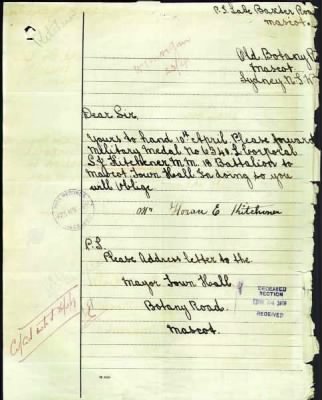 P.S Late Baxter Road
Mascot.
Old Botany R
Mascot
Sydney N.S.W
Dear Sir,
Yours to hand 10th April Please forward
Military Medal No 6348 L Corporal
S.J. Kitchener M.M. 18 Battalion to
Mascot Town Hall In doing so you
will Oblige
Kitchener
P.S.
Please Address letter to the
Mayor Town Hall
Botany Road.
Mascot.
DECEASED
SECTION
RECEIVED